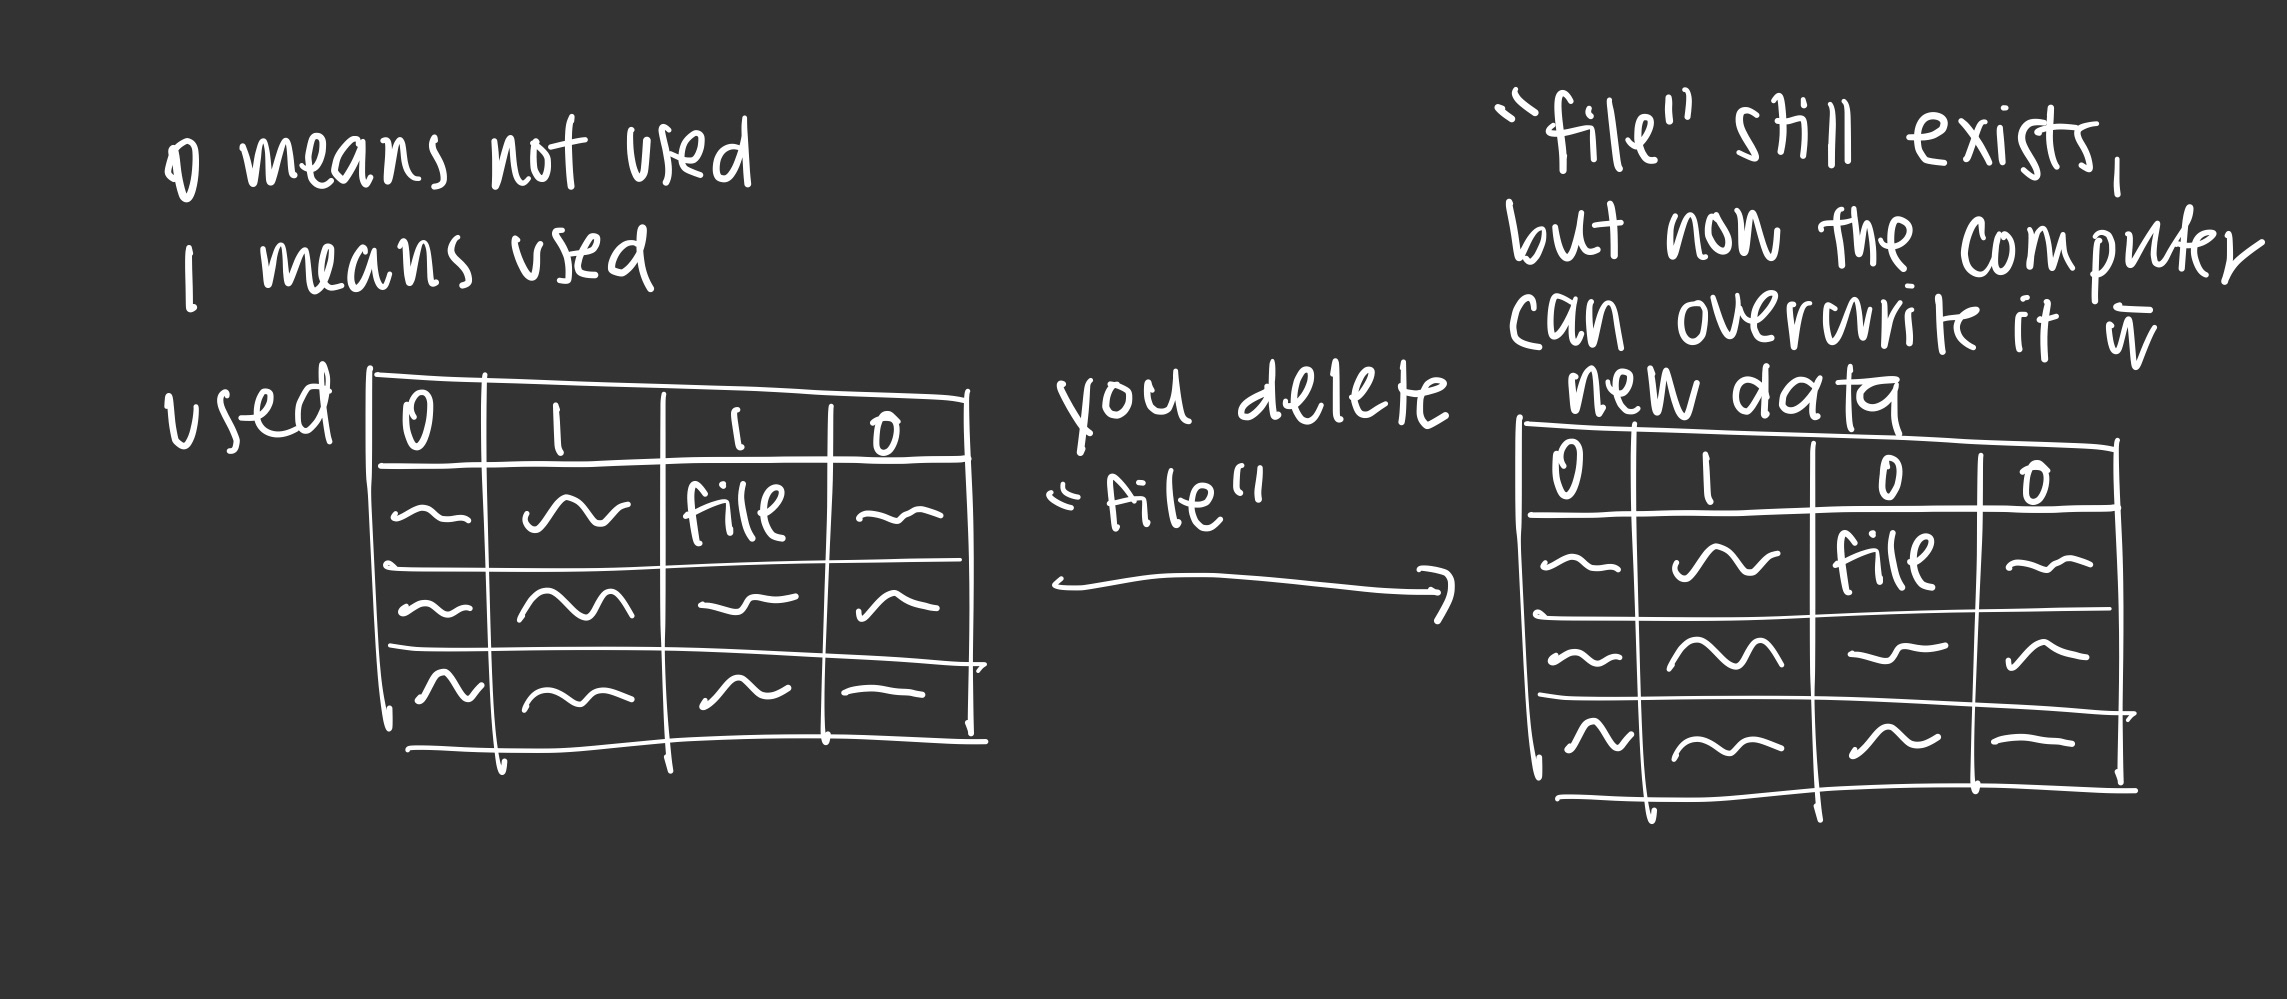 0 means not used
1 means used
used 0 1 1 0
file
you delete
"file"
"file" still exists,
but now the computer
can overwrite it w̄
new data
0 1 0 0
file